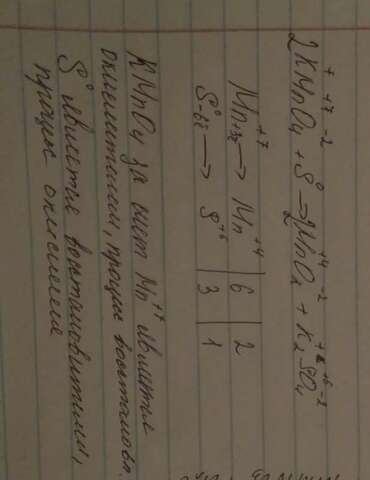 2KMnO₄ + S⁰ → 2MnO₂ + K₂SO₄
+ +7 -2 +4 -2 + +6 -2
Mn⁺⁷ +3ē → Mn⁺⁴ | 6 | 2
S⁰ -6ē → S⁺⁶ | 3 | 1
KMnO₄ за счет Mn⁺⁷ является
окислителем, процес восстановл.
S⁰ является восстановителем,
процес окисления